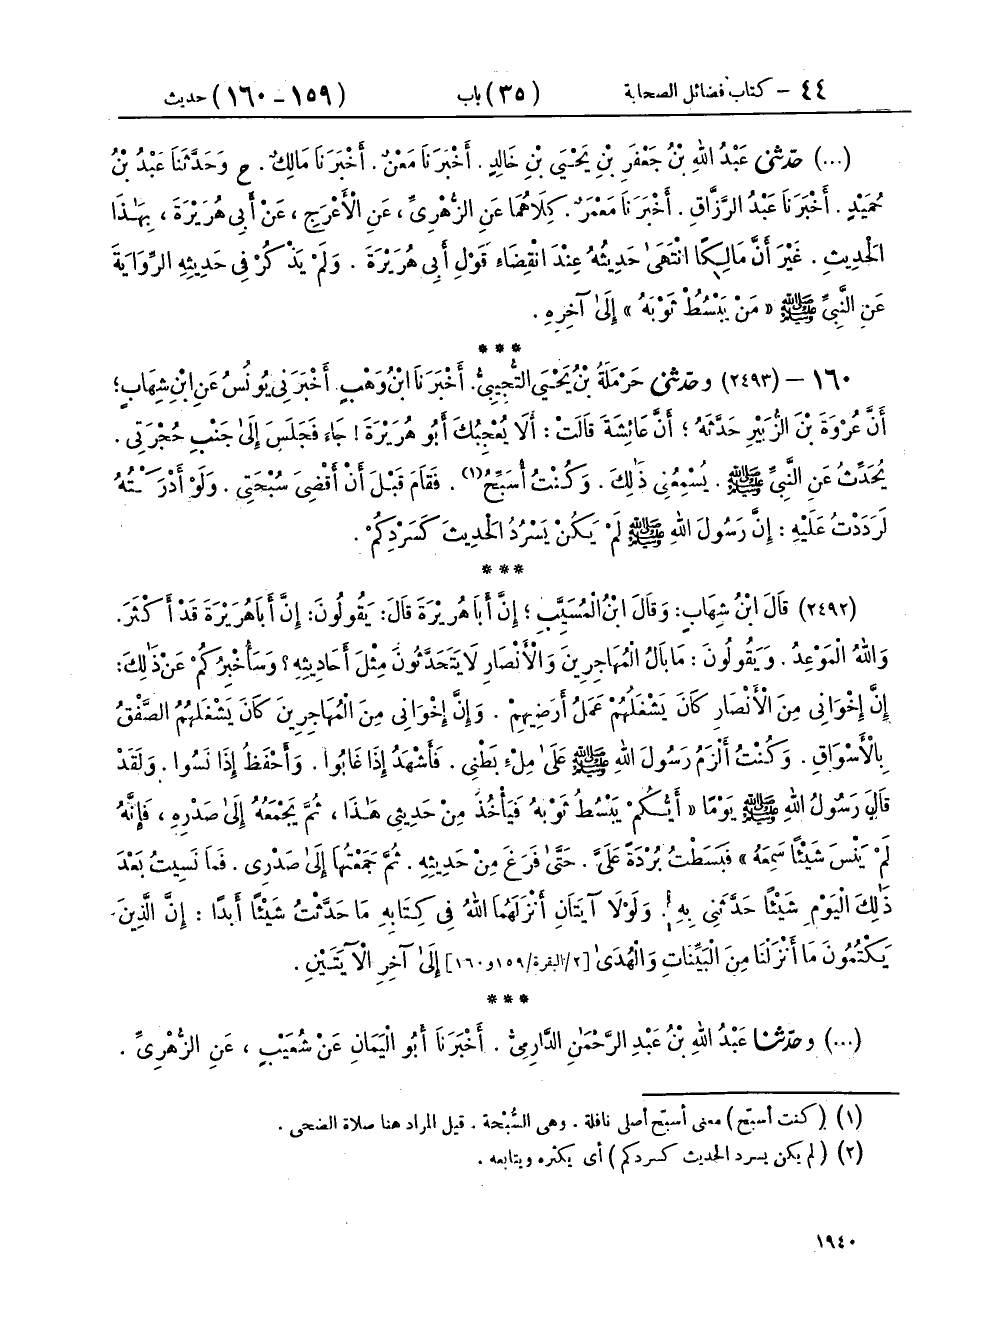 ٤٤ – كتاب فضائل الصحابة (٣٥) باب (١٥٩–١٦٠) حديث
(...) حَدَّثَنِي عَبْدُ اللهِ بْنُ جَعْفَرِ بْنِ يَحْيَى بْنِ خَالِدٍ . أَخْبَرَنَا مَعْنٌ . أَخْبَرَنَا مَالِكٌ . ح وَحَدَّثَنَا عَبْدُ بْنُ
حُمَيْدٍ . أَخْبَرَنَا عَبْدُ الرَّزَّاقِ . أَخْبَرَنَا مَعْمَرٌ . كِلَاهُمَا عَنِ الزُّهْرِيِّ ، عَنِ الْأَعْرَجِ ، عَنْ أَبِي هُرَيْرَةَ ، بِهَٰذَا
الْحَدِيثِ . غَيْرَ أَنَّ مَالِكًا انْتَهَىٰ حَدِيثُهُ عِنْدَ انْقِضَاءِ قَوْلِ أَبِي هُرَيْرَةَ . وَلَمْ يَذْكُرْ فِي حَدِيثِهِ الرِّوَايَةَ
عَنِ النَّبِيِّ ﷺ « مَنْ يَبْسُطْ ثَوْبَهُ » إِلَىٰ آخِرِهِ .
***
١٦٠ – (٢٤٩٣) وحَدَّثَنِي حَرْمَلَةُ بْنُ يَحْيَى التُّجِيبِيُّ . أَخْبَرَنَا ابْنُ وَهْبٍ . أَخْبَرَنِي يُونُسُ عَنِ ابْنِ شِهَابٍ ؛
أَنَّ عُرْوَةَ بْنَ الزُّبَيْرِ حَدَّثَهُ ؛ أَنَّ عَائِشَةَ قَالَتْ : أَلَا يُعْجِبُكَ أَبُو هُرَيْرَةَ ! جَاءَ فَجَلَسَ إِلَىٰ جَنْبِ حُجْرَتِي .
يُحَدِّثُ عَنِ النَّبِيِّ ﷺ . يُسْمِعُنِي ذَٰلِكَ . وَكُنْتُ أُسَبِّحُ(١) . فَقَامَ قَبْلَ أَنْ أَقْضِيَ سُبْحَتِي . وَلَوْ أَدْرَكْتُهُ
لَرَدَدْتُ عَلَيْهِ : إِنَّ رَسُولَ اللهِ ﷺ لَمْ يَكُنْ يَسْرُدُ الْحَدِيثَ كَسَرْدِكُمْ .
***
(٢٤٩٢) قَالَ ابْنُ شِهَابٍ : وَقَالَ ابْنُ الْمُسَيَّبِ ؛ إِنَّ أَبَا هُرَيْرَةَ قَالَ : يَقُولُونَ : إِنَّ أَبَا هُرَيْرَةَ قَدْ أَكْثَرَ .
وَاللهُ الْمَوْعِدُ . وَيَقُولُونَ : مَا بَالُ الْمُهَاجِرِينَ وَالْأَنْصَارِ لَا يَتَحَدَّثُونَ مِثْلَ أَحَادِيثِهِ ؟ وَسَأُخْبِرُكُمْ عَنْ ذَٰلِكَ :
إِنَّ إِخْوَانِي مِنَ الْأَنْصَارِ كَانَ يَشْغَلُهُمْ عَمَلُ أَرَضِيهِمْ . وَإِنَّ إِخْوَانِي مِنَ الْمُهَاجِرِينَ كَانَ يَشْغَلُهُمُ الصَّفْقُ
بِالْأَسْوَاقِ . وَكُنْتُ أَلْزَمُ رَسُولَ اللهِ ﷺ عَلَىٰ مِلْءِ بَطْنِي . فَأَشْهَدُ إِذَا غَابُوا . وَأَحْفَظُ إِذَا نَسُوا . وَلَقَدْ
قَالَ رَسُولُ اللهِ ﷺ يَوْمًا « أَيُّكُمْ يَبْسُطُ ثَوْبَهُ فَيَأْخُذُ مِنْ حَدِيثِي هَٰذَا ، ثُمَّ يَجْمَعُهُ إِلَىٰ صَدْرِهِ ، فَإِنَّهُ
لَمْ يَنْسَ شَيْئًا سَمِعَهُ » فَبَسَطْتُ بُرْدَةً عَلَيَّ . حَتَّىٰ فَرَغَ مِنْ حَدِيثِهِ . ثُمَّ جَمَعْتُهَا إِلَىٰ صَدْرِي . فَمَا نَسِيتُ بَعْدَ
ذَٰلِكَ الْيَوْمِ شَيْئًا حَدَّثَنِي بِهِ . وَلَوْلَا آيَتَانِ أَنْزَلَهُمَا اللهُ فِي كِتَابِهِ مَا حَدَّثْتُ شَيْئًا أَبَدًا : إِنَّ الَّذِينَ
يَكْتُمُونَ مَا أَنْزَلْنَا مِنَ الْبَيِّنَاتِ وَالْهُدَىٰ [٢/البقرة/١٥٩ و ١٦٠] إِلَىٰ آخِرِ الْآيَتَيْنِ .
***
(...) وحَدَّثَنَا عَبْدُ اللهِ بْنُ عَبْدِ الرَّحْمَٰنِ الدَّارِمِيُّ . أَخْبَرَنَا أَبُو الْيَمَانِ عَنْ شُعَيْبٍ ، عَنِ الزُّهْرِيِّ .
(١) (كنت أسبّح) معنى أسبّح أصلى نافلة . وهى السُّبْحة . قيل المراد هنا صلاة الضحى .
(٢) (لم يكن يسرد الحديث كسردكم) أى يكثره ويتابعه .
١٩٤٠